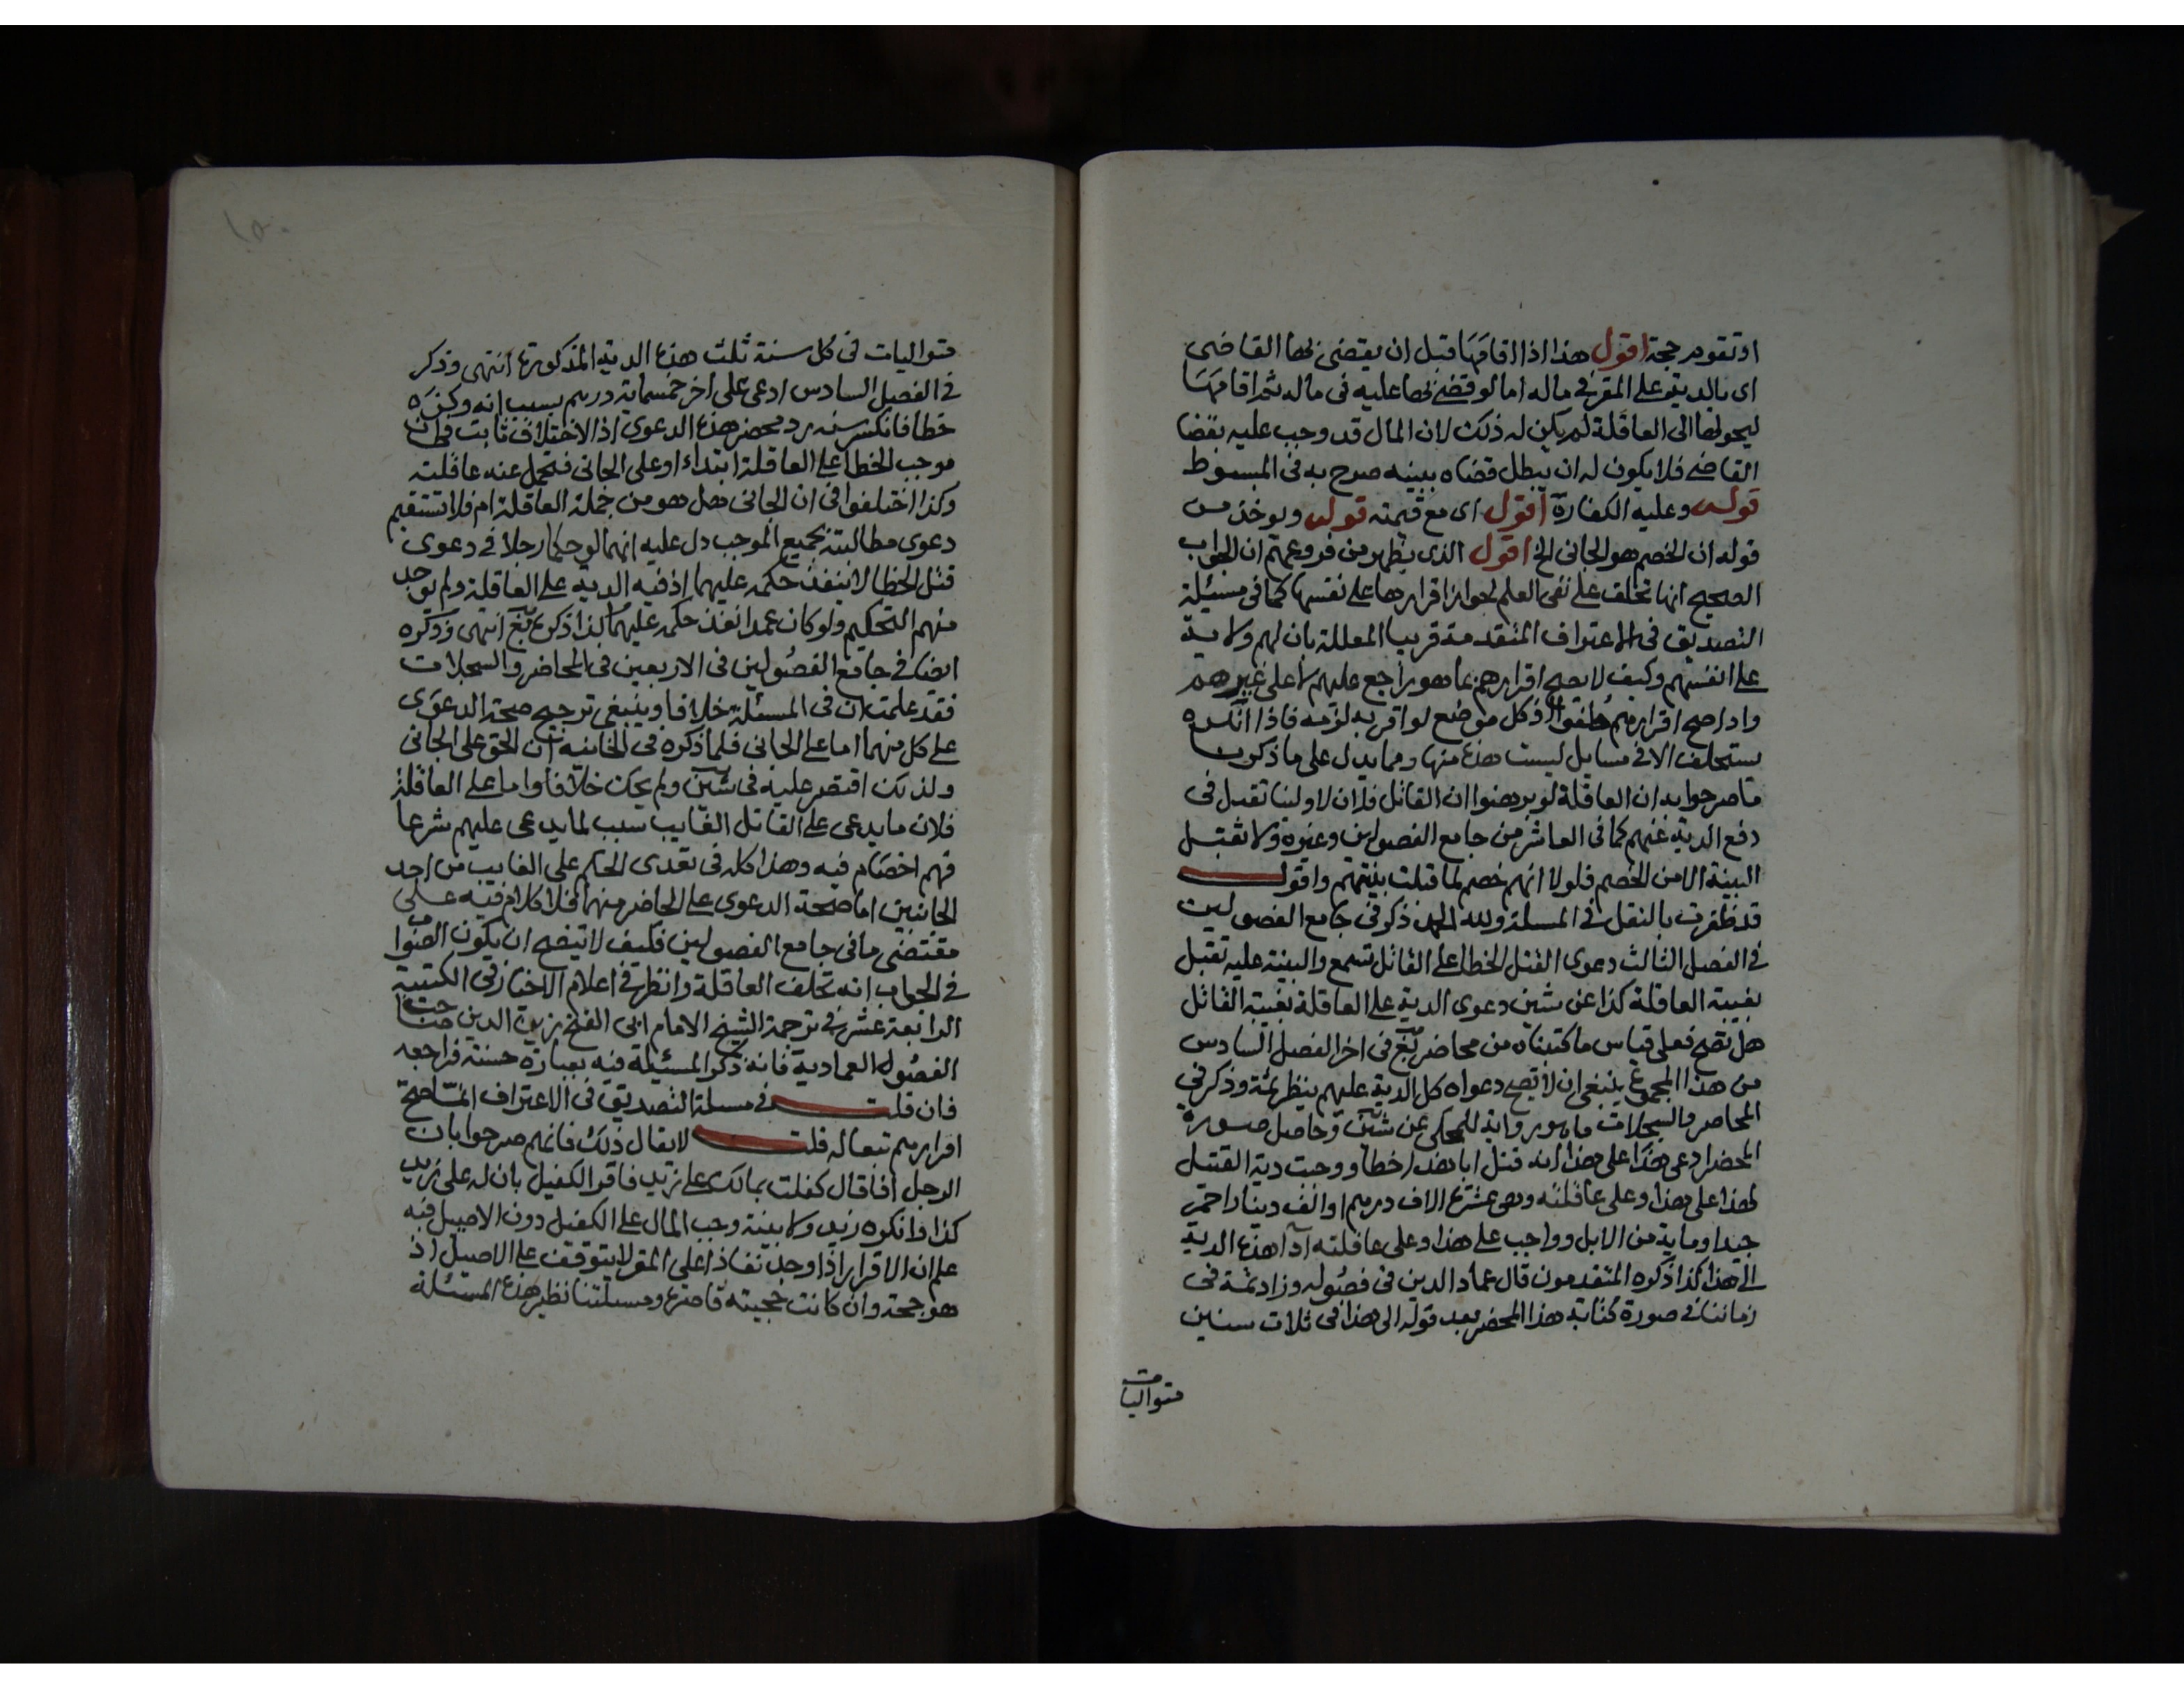 او تقوم حجة اقول هذا اذا اقامها قبل ان يقضى بها القاضى
اى بالدية على المقر فى ماله اما لو قضى بها عليه فى ماله ثم اقامها
ليحولها الى العاقلة لم يكن له ذلك لان المال قد وجب عليه بقضا
القاضى فلا يكون له ان يبطل قضاه ببينه صرح به فى المبسوط
قوله وعليه الكفارة اقول اى مع قيمته قوله ويوخذ من
قوله ان الخصم هو الجانى الخ اقول الذى يظهر من فروعهم ان الجواب
الصحيح انها تحلف على نفى العلم لجواز اقرارها على نفسها كما فى مسئلة
التصديق فى الاعتراف المتقدمة قريبا المعللة بان لهم ولاية
على انفسهم وكيف لا يصح اقرارهم بما هو راجع عليهم لا على غيرهم
واذا صح اقرارهم حلفوا اذ كل موضع لو اقر به لزمه فاذا انكره
يستحلف الا فى مسايل ليست هذه منها ومما يدل على ما ذكرنا
ما صرحوا به ان العاقلة لو برهنوا ان القاتل فلان لا ولينا تقبل فى
دفع الدية عنهم كما فى العاشر من جامع الفصولين وغيره ولا تقبل
البينة الا من الخصم فلولا انهم خصم لما قبلت بينتهم واقول
قد ظفرت بالنقل فى المسلة ولله الحمد ذكر فى جامع الفصولين
فى الفصل الثالث دعوى القتل الخطا على القاتل تسمع والبينة عليه تقبل
بغيبة العاقلة كذا عن شين دعوى الدية على العاقلة بغيبة القاتل
هل تصح فعلى قياس ما كتبناه من محاضر بغ فى اخر الفصل السادس
من هذا المجموع ينبغى ان لا تصح دعواه كل الدية عليهم ينظر ثمة وذكر فى
المحاضر والسجلات ما هو رواية للمحكى عن شين وحاصل صورة
المحضر ادعى هذا على هذا انه قتل ابا هذا خطا ووجبت دية القتل
لهذا على هذا وعلى عاقلته وهى عشرة الاف درهم او الف دينار احمر
جيد او ماية من الابل وواجب على هذا وعلى عاقلته اداء هذه الدية
الى هذا كذا ذكره المتقدمون قال عماد الدين فى فصوله وزاد ثمة فى
زماننا فى صورة كتابة هذا المحضر بعد قوله الى هذا فى ثلاث سنين
متواليات
متواليات فى كل سنة ثلث هذه الدية المذكورة انتهى وذكر
فى الفصل السادس ادعى على اخر خمسماية درهم بسبب انه وكزه
خطا فانكسر سنه يرد محضر هذه الدعوى اذ الاختلاف ثابت فى ان
موجب الخطا على العاقلة ابتداء او على الجانى فتحمل عنه عاقلته
وكذا اختلفوا فى ان الجانى هل هو من جملة العاقلة ام فلا تستقيم
دعوى مطالبته بجميع الموجب دل عليه انهما لو حكما رجلا فى دعوى
قتل الخطا لا ينفذ حكمه عليهما اذ فيه الدية على العاقلة ولم يوجد
منهم التحكيم ولو كان عمدا نفذ حكمه عليهما كذا ذكره بغ انتهى وذكره
ايضا فى جامع الفصولين فى الاربعين فى المحاضر والسجلات
فقد علمت ان فى المسئلة خلافا وينبغى ترجيح صحة الدعوى
على كل منهما اما على الجانى فلما ذكره فى الخانية ان الحق على الجانى
ولذلك اقتصر عليه فى شين ولم يحك خلافا واما على العاقلة
فلان ما يدعى على القاتل الغايب سبب لما يدعى عليهم شرعا
فهم اخصام فيه وهذا كله فى تعدى الحكم على الغايب من احد
الجانبين اما صحة الدعوى على الحاضر منهما فلا كلام فيه على
مقتضى ما فى جامع الفصولين فكيف لا يتضح ان يكون الصواب
فى الجواب انه تحلف العاقلة وانظر فى اعلام الاخيار فى الكتيبة
الرابعة عشر فى ترجمة الشيخ الامام ابى الفتح زين الدين صاحب
الفصول العمادية فانه ذكر المسئلة فيه بعبارة حسنة فراجعه
فان قلت فى مسلة التصديق فى الاعتراف انما صح
اقرارهم تبعا له قلت لا يقال ذلك فانهم صرحوا بان
الرجل اذا قال كفلت بمالك على زيد فاقر الكفيل بان له على زيد
كذا فانكره زيد ولا بينة وجب المال على الكفيل دون الاصيل فيه
علم ان الاقرار اذا وجد نفاذا على المقر لا يتوقف على الاصيل اذ
هو حجة وان كانت حجيته قاصرة ومسئلتنا نظير هذه المسئلة